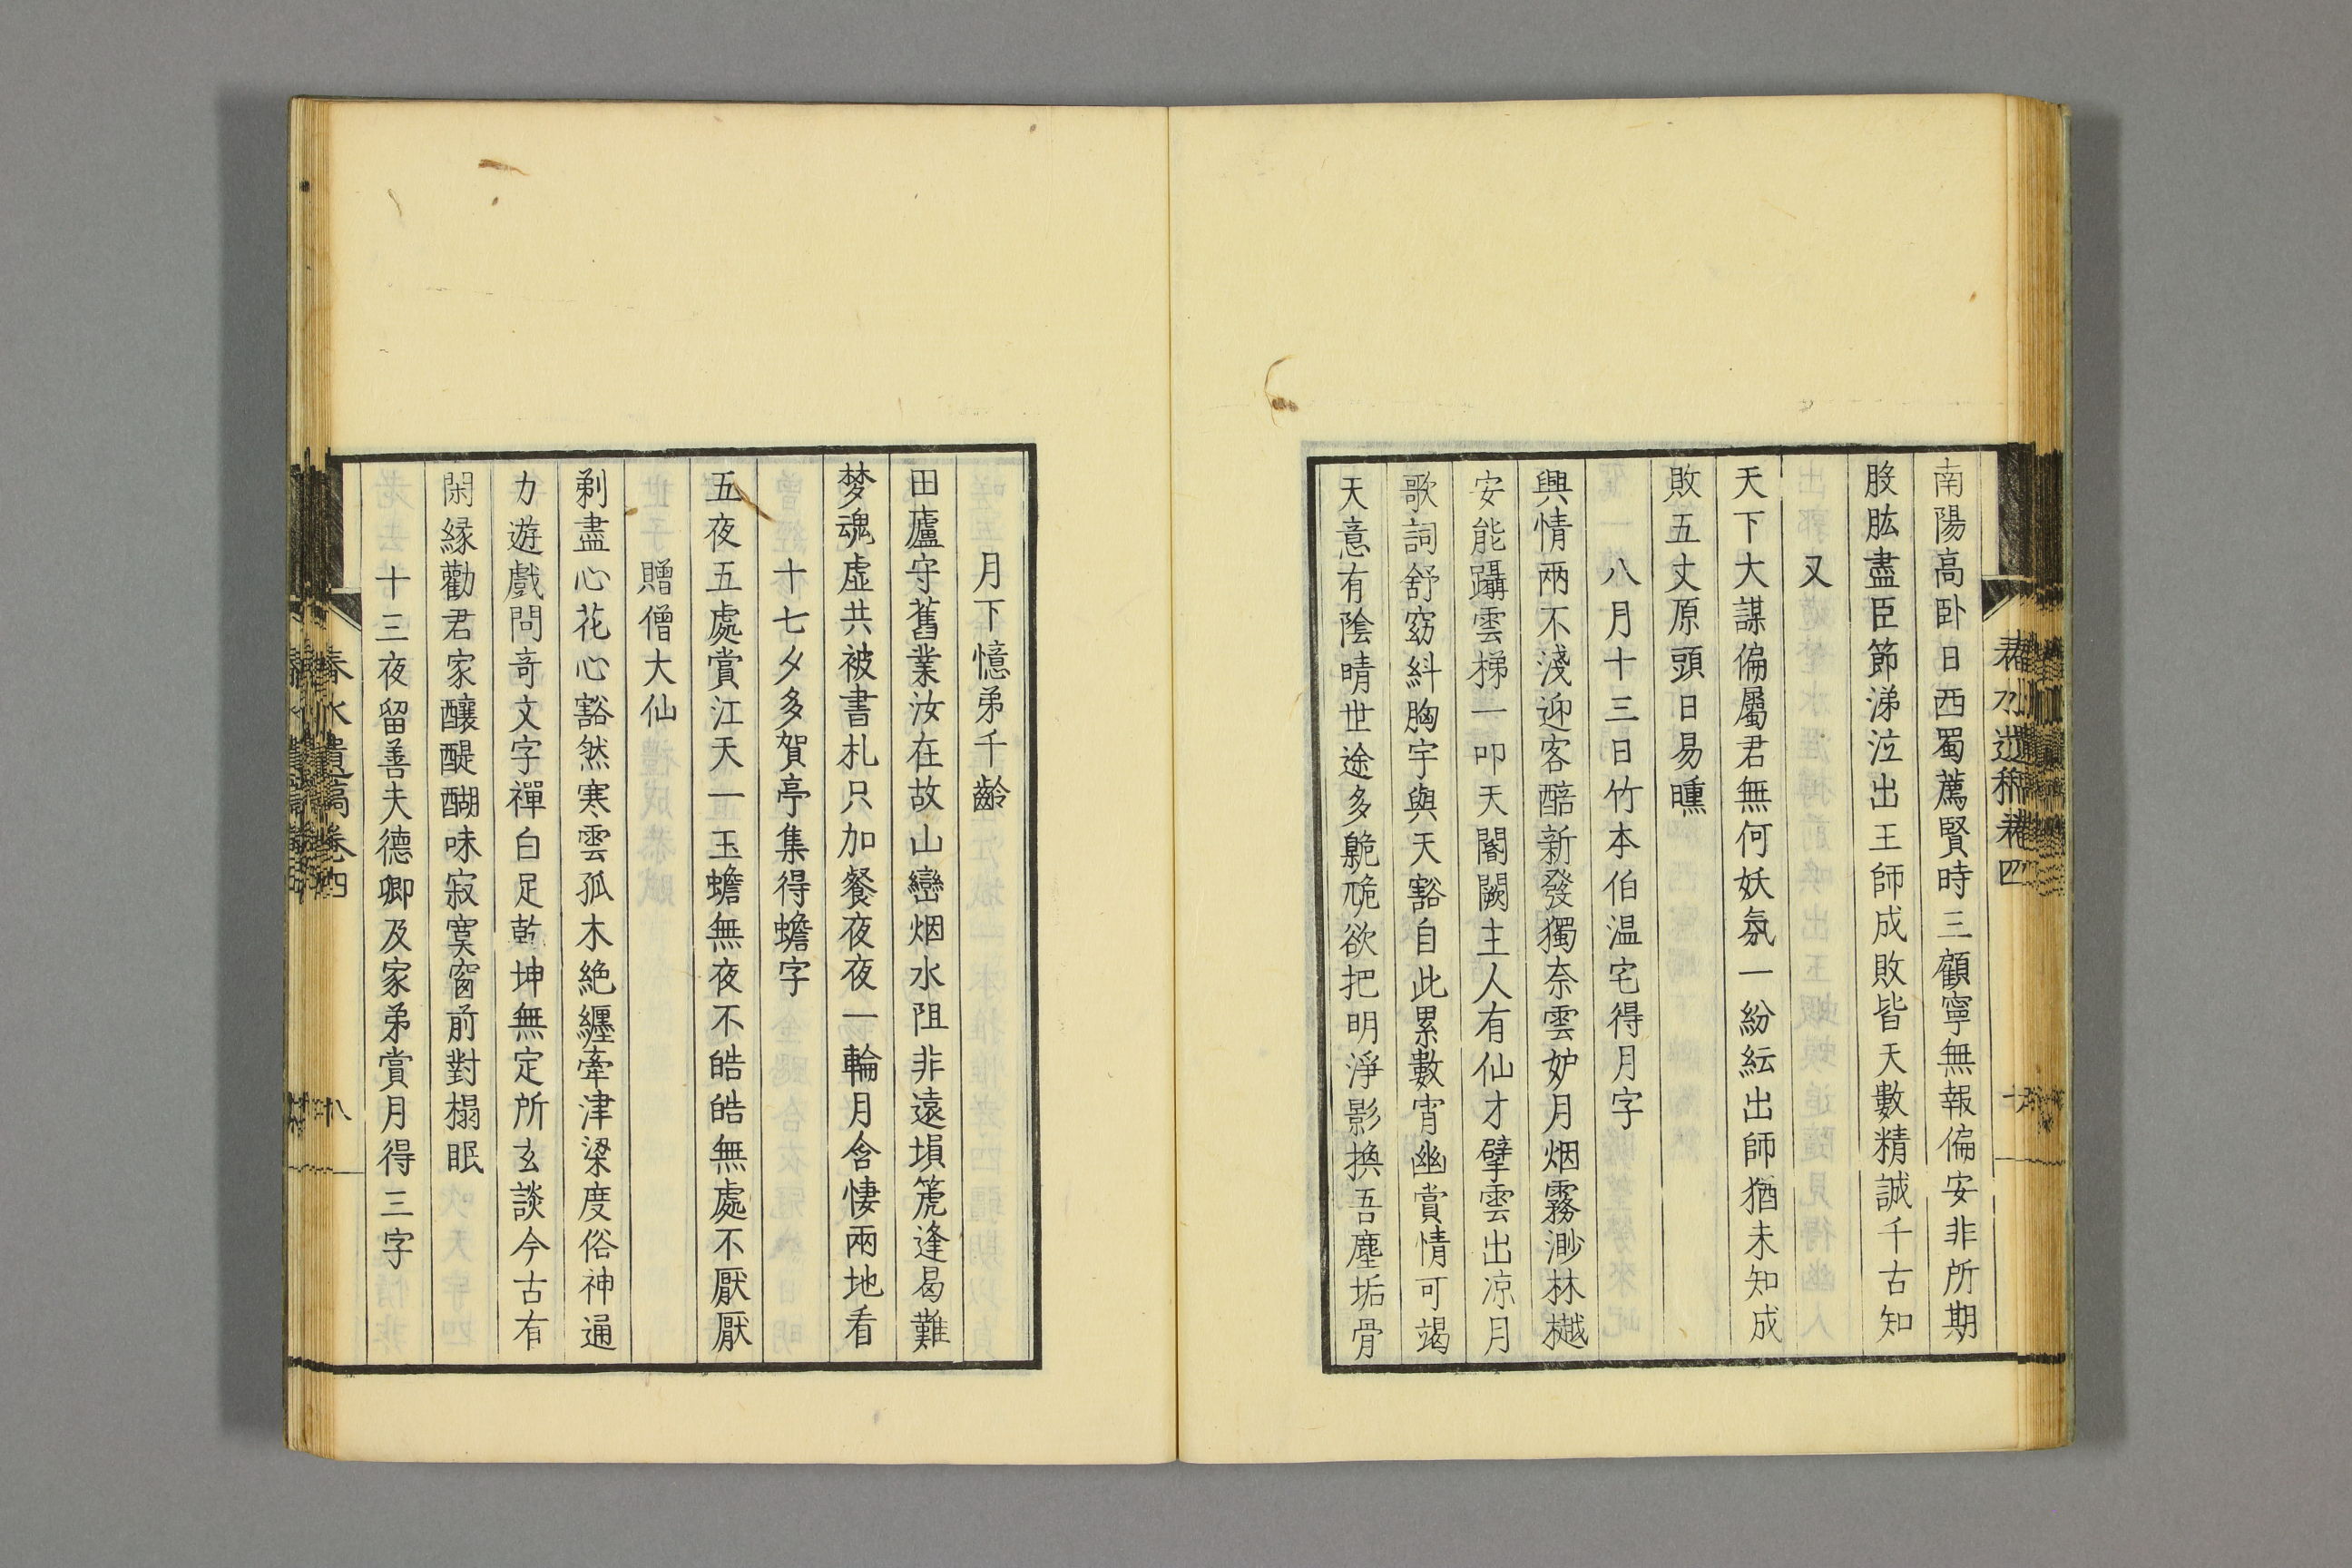 南陽高卧日西蜀薦賢時三顧寧無報偏安非所期
股肱盡臣節涕泣出王師成敗皆天數精誠千古知
又
天下大謀偏屬君無何妖氛一紛紜出師猶未知成
敗五丈原頭日易曛
八月十三日竹本伯温宅得月字
興情兩不淺迎客醅新發獨奈雲妒月烟霧渺林樾
安能躡雲梯一叩天閽闕主人有仙才擘雲出凉月
歌詞舒窈糾胸宇與天豁自此累數宵幽賞情可竭
天意有陰晴世途多臲卼欲把明淨影換吾塵垢骨
月下憶弟千齡
田廬守舊業汝在故山巒烟水阻非遠塤箎逢曷難
梦魂虛共被書札只加餐夜夜一輪月含悽兩地看
十七夕多賀亭集得蟾字
五夜五處賞江天一玉蟾無夜不皓皓無處不厭厭
贈僧大仙
剃盡心花心豁然寒雲孤木絶纒牽津梁度俗神通
力遊戲問竒文字禪白足乾坤無定所玄談今古有
閑縁勸君家釀醍醐味寂寞窗前對榻眠
十三夜留善夫德卿及家弟賞月得三字
春水遺稿卷四
八